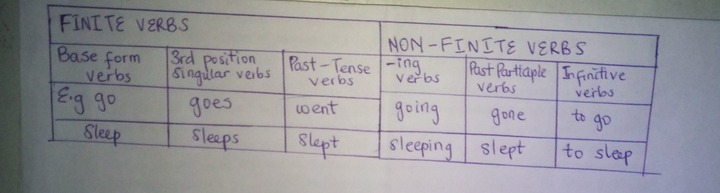 FINITE VERBS
NON-FINITE VERBS
Base form verbs | 3rd position Singular verbs | Past-Tense verbs | -ing verbs | Past Partiaple verbs | Infinitive verbs
E.g go | goes | went | going | gone | to go
Sleep | Sleeps | Slept | sleeping | slept | to sleep